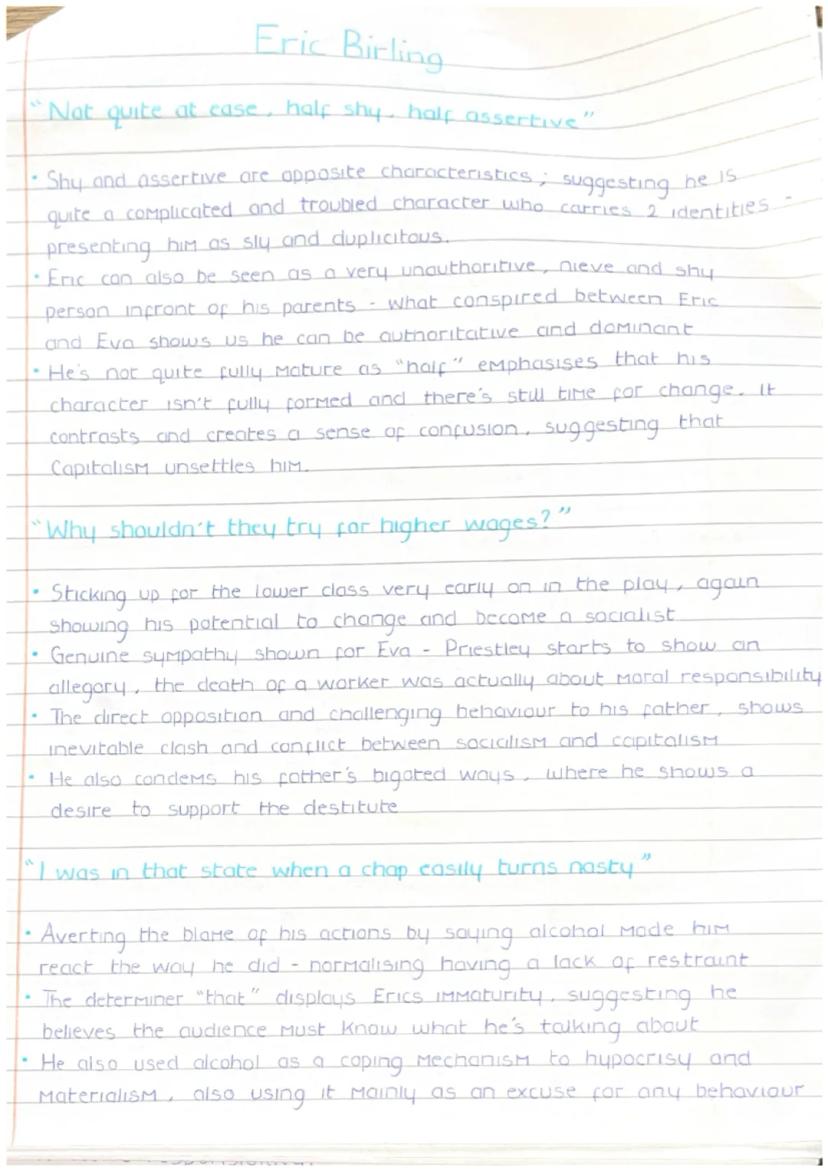 Eric Birling
"Not quite at ease, half shy, half assertive"
• Shy and assertive are opposite characteristics; suggesting he is
quite a complicated and troubled character who carries 2 identities -
presenting him as sly and duplicitous.
• Eric can also be seen as a very unauthoritive, nieve and shy
person infront of his parents - what conspired between Eric
and Eva shows us he can be authoritative and dominant
• He's not quite fully mature as "half" emphasises that his
character isn't fully formed and there's still time for change. It
contrasts and creates a sense of confusion, suggesting that
Capitalism unsettles him.
"Why shouldn't they try for higher wages?"
• Sticking up for the lower class very early on in the play, again
showing his potential to change and become a socialist
• Genuine sympathy shown for Eva - Priestley starts to show an
allegory, the death of a worker was actually about moral responsibility
• The direct opposition and challenging behaviour to his father, shows
inevitable clash and conflict between socialism and capitalism
• He also condems his father's bigoted ways, where he shows a
desire to support the destitute
"I was in that state when a chap easily turns nasty"
• Averting the blame of his actions by saying alcohol made him
react the way he did - normalising having a lack of restraint
• The determiner "that" displays Erics immaturity, suggesting he
believes the audience must know what he's talking about
• He also used alcohol as a coping mechanism to hypocrisy and
materialism, also using it mainly as an excuse for any behaviour